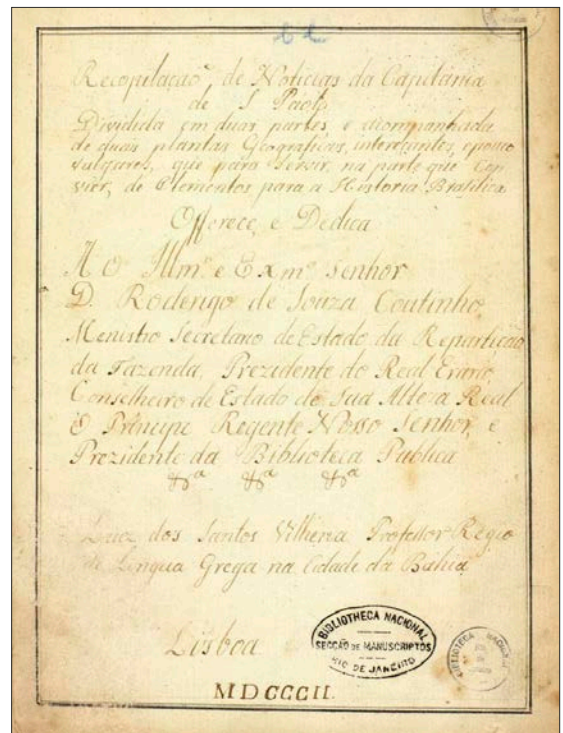 Recopilação de Noticias da Capitania
de S Paolo
Dividida em duas partes, e acompanhada
de duas plantas Geograficas, intereçantes, e pouco
vulgares, que para servir, na parte que Con
vier, de Elementos para a Historia Brasilica
Offerece, e Dedica
A O Illmº e Exmº Senhor
D. Roderigo de Souza Coutinho,
Menistro Secretario de Estado da Repartição
da Fazenda, Prezidente do Real Erario,
Conselheiro de Estado de Sua Alteza Real
O Principe Regente Nosso Senhor, e
Prezidente da Biblioteca Publica
&ª &ª &ª
Luiz dos Santos Vilhena Professor Regio
de Lingua Grega na Cidade da Bahia
Lisboa
BIBLIOTHECA NACIONAL
SECÇÃO DE MANUSCRIPTOS
RIO DE JANEIRO
MDCCCII